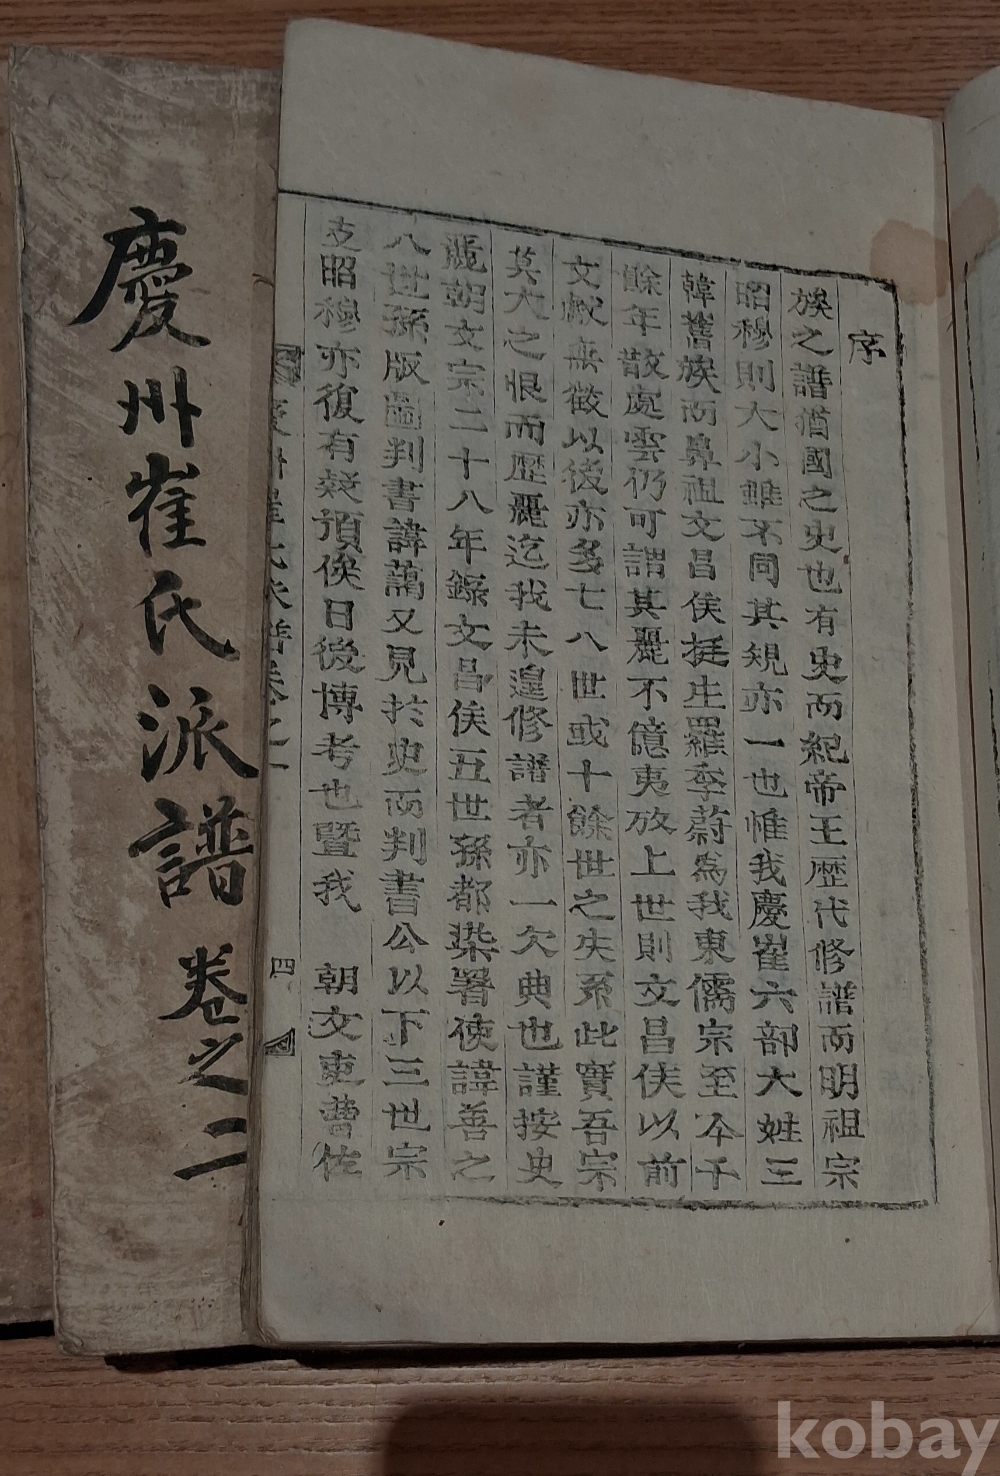 序
族之譜猶國之史也有史而紀帝王歷代修譜而明祖宗
昭穆則大小雖不同其規亦一也惟我慶崔六部大姓三
韓舊族而鼻祖文昌侯挺生羅季蔚爲我東儒宗至今千
餘年散處雲仍可謂其麗不億夷攷上世則文昌侯以前
文獻無徵以後亦多七八世或十餘世之失系此實吾宗
莫大之恨而歷麗迄我未遑修譜者亦一欠典也謹按史
麗朝文宗二十八年錄文昌侯五世孫都染署使諱善之
八世孫版圖判書諱蕅又見於史而判書公以下三世宗
支昭穆亦復有疑須俟日後博考也曁我 朝文吏曹佐
慶州崔氏派譜卷之一
四
慶州崔氏派譜 卷之二
kobay